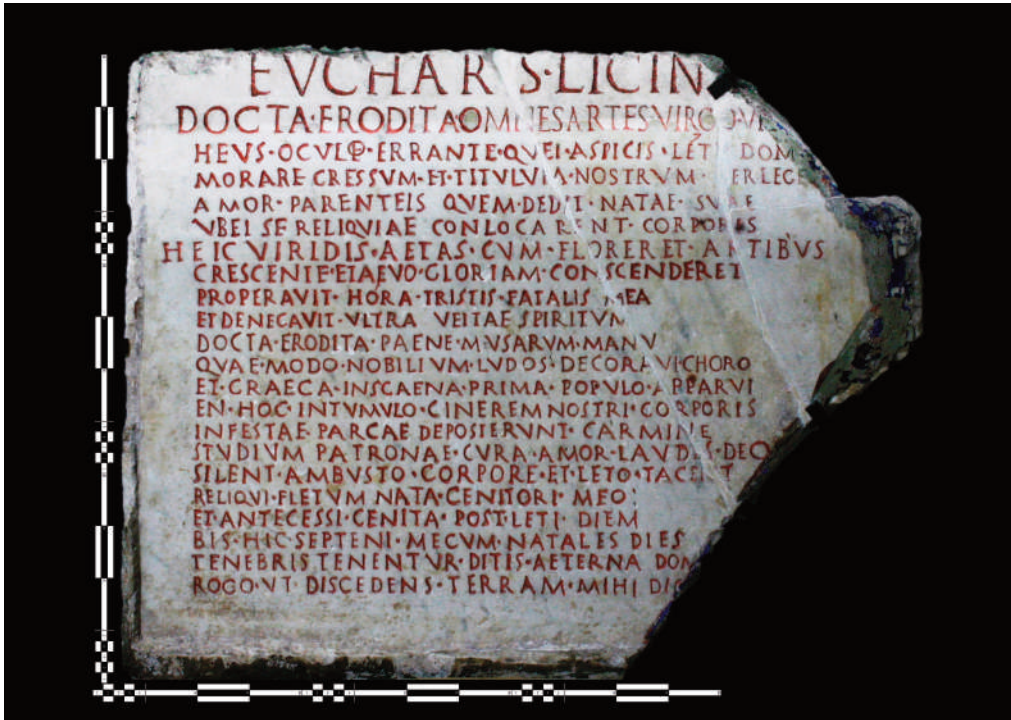 EVCHARIS·LICIN
DOCTA·ERODITA·OMNES ARTES·VIRGO·VI
HEVS·OCVLO·ERRANTE·QVEI·ASPICIS·LÉTI DOM
MORARE GRESSVM·ET·TITVLVM·NOSTRVM PERLEGE
AMOR·PARENTEIS QVEM·DEDIT·NATAE·SVAE
VBEI SE RELIQVIAE CONLOCARENT·CORPORIS
HEIC VIRIDIS·AETAS·CVM·FLORERET·ARTIBVS
CRESCENTE·ET AEVO·GLORIAM·CONSCENDERET
PROPERAVIT·HORA·TRISTIS·FATALIS MEA
ET DENEGAVIT·VLTRA VEITAE SPIRITVM
DOCTA·ERODITA·PAENE·MVSARVM·MANV
QVAE·MODO·NOBILIVM·LVDOS·DECORAVI·CHORO
ET·GRAECA·IN SCAENA·PRIMA·POPVLO·APPARVI
EN·HOC IN TVMVLO·CINEREM NOSTRI·CORPORIS
INFESTAE·PARCAE DEPOSIERVNT·CARMINE
STVDIVM PATRONAE·CVRA·AMOR·LAVDES·DECV
SILENT·AMBVSTO·CORPORE·ET·LETO·TACENT
RELIQVI·FLETVM NATA·GENITORI·MEO
ET·ANTECESSI·GENITA·POST·LETI·DIEM
BIS·HIC·SEPTENI·MECVM·NATALES DIES
TENEBRIS TENENTVR·DITIS·AETERNA DOM
ROGO·VT·DISCEDENS·TERRAM·MIHI DIC